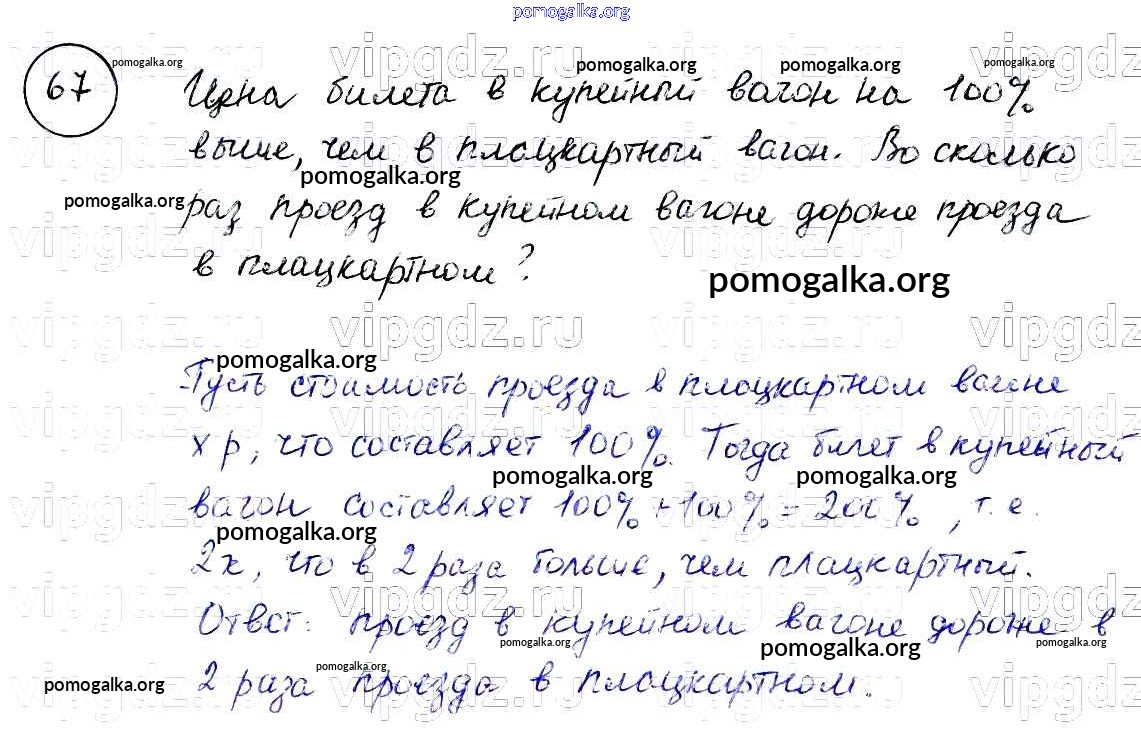 pomogalka.org
67
Цена билета в купейный вагон на 100%
выше, чем в плацкартный вагон. Во сколько
раз проезд в купейном вагоне дороже проезда
в плацкартном?
Пусть стоимость проезда в плацкартном вагоне
х р, что составляет 100%. Тогда билет в купейный
вагон составляет 100% + 100% = 200%, т.е.
2х, что в 2 раза больше, чем плацкартный.
Ответ: проезд в купейном вагоне дороже в
2 раза проезда в плацкартном.